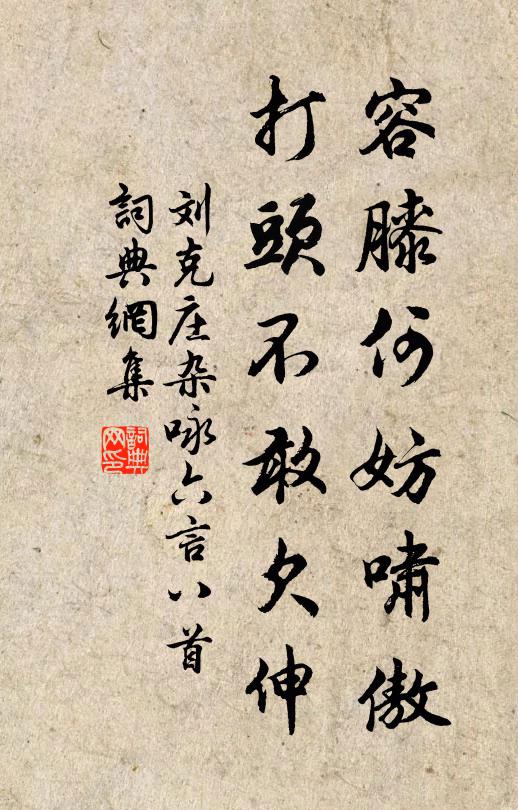 容膝何妨嘯傲
打頭不敢欠伸
刘克庄杂咏六言八首
詞典網集
詞典网印